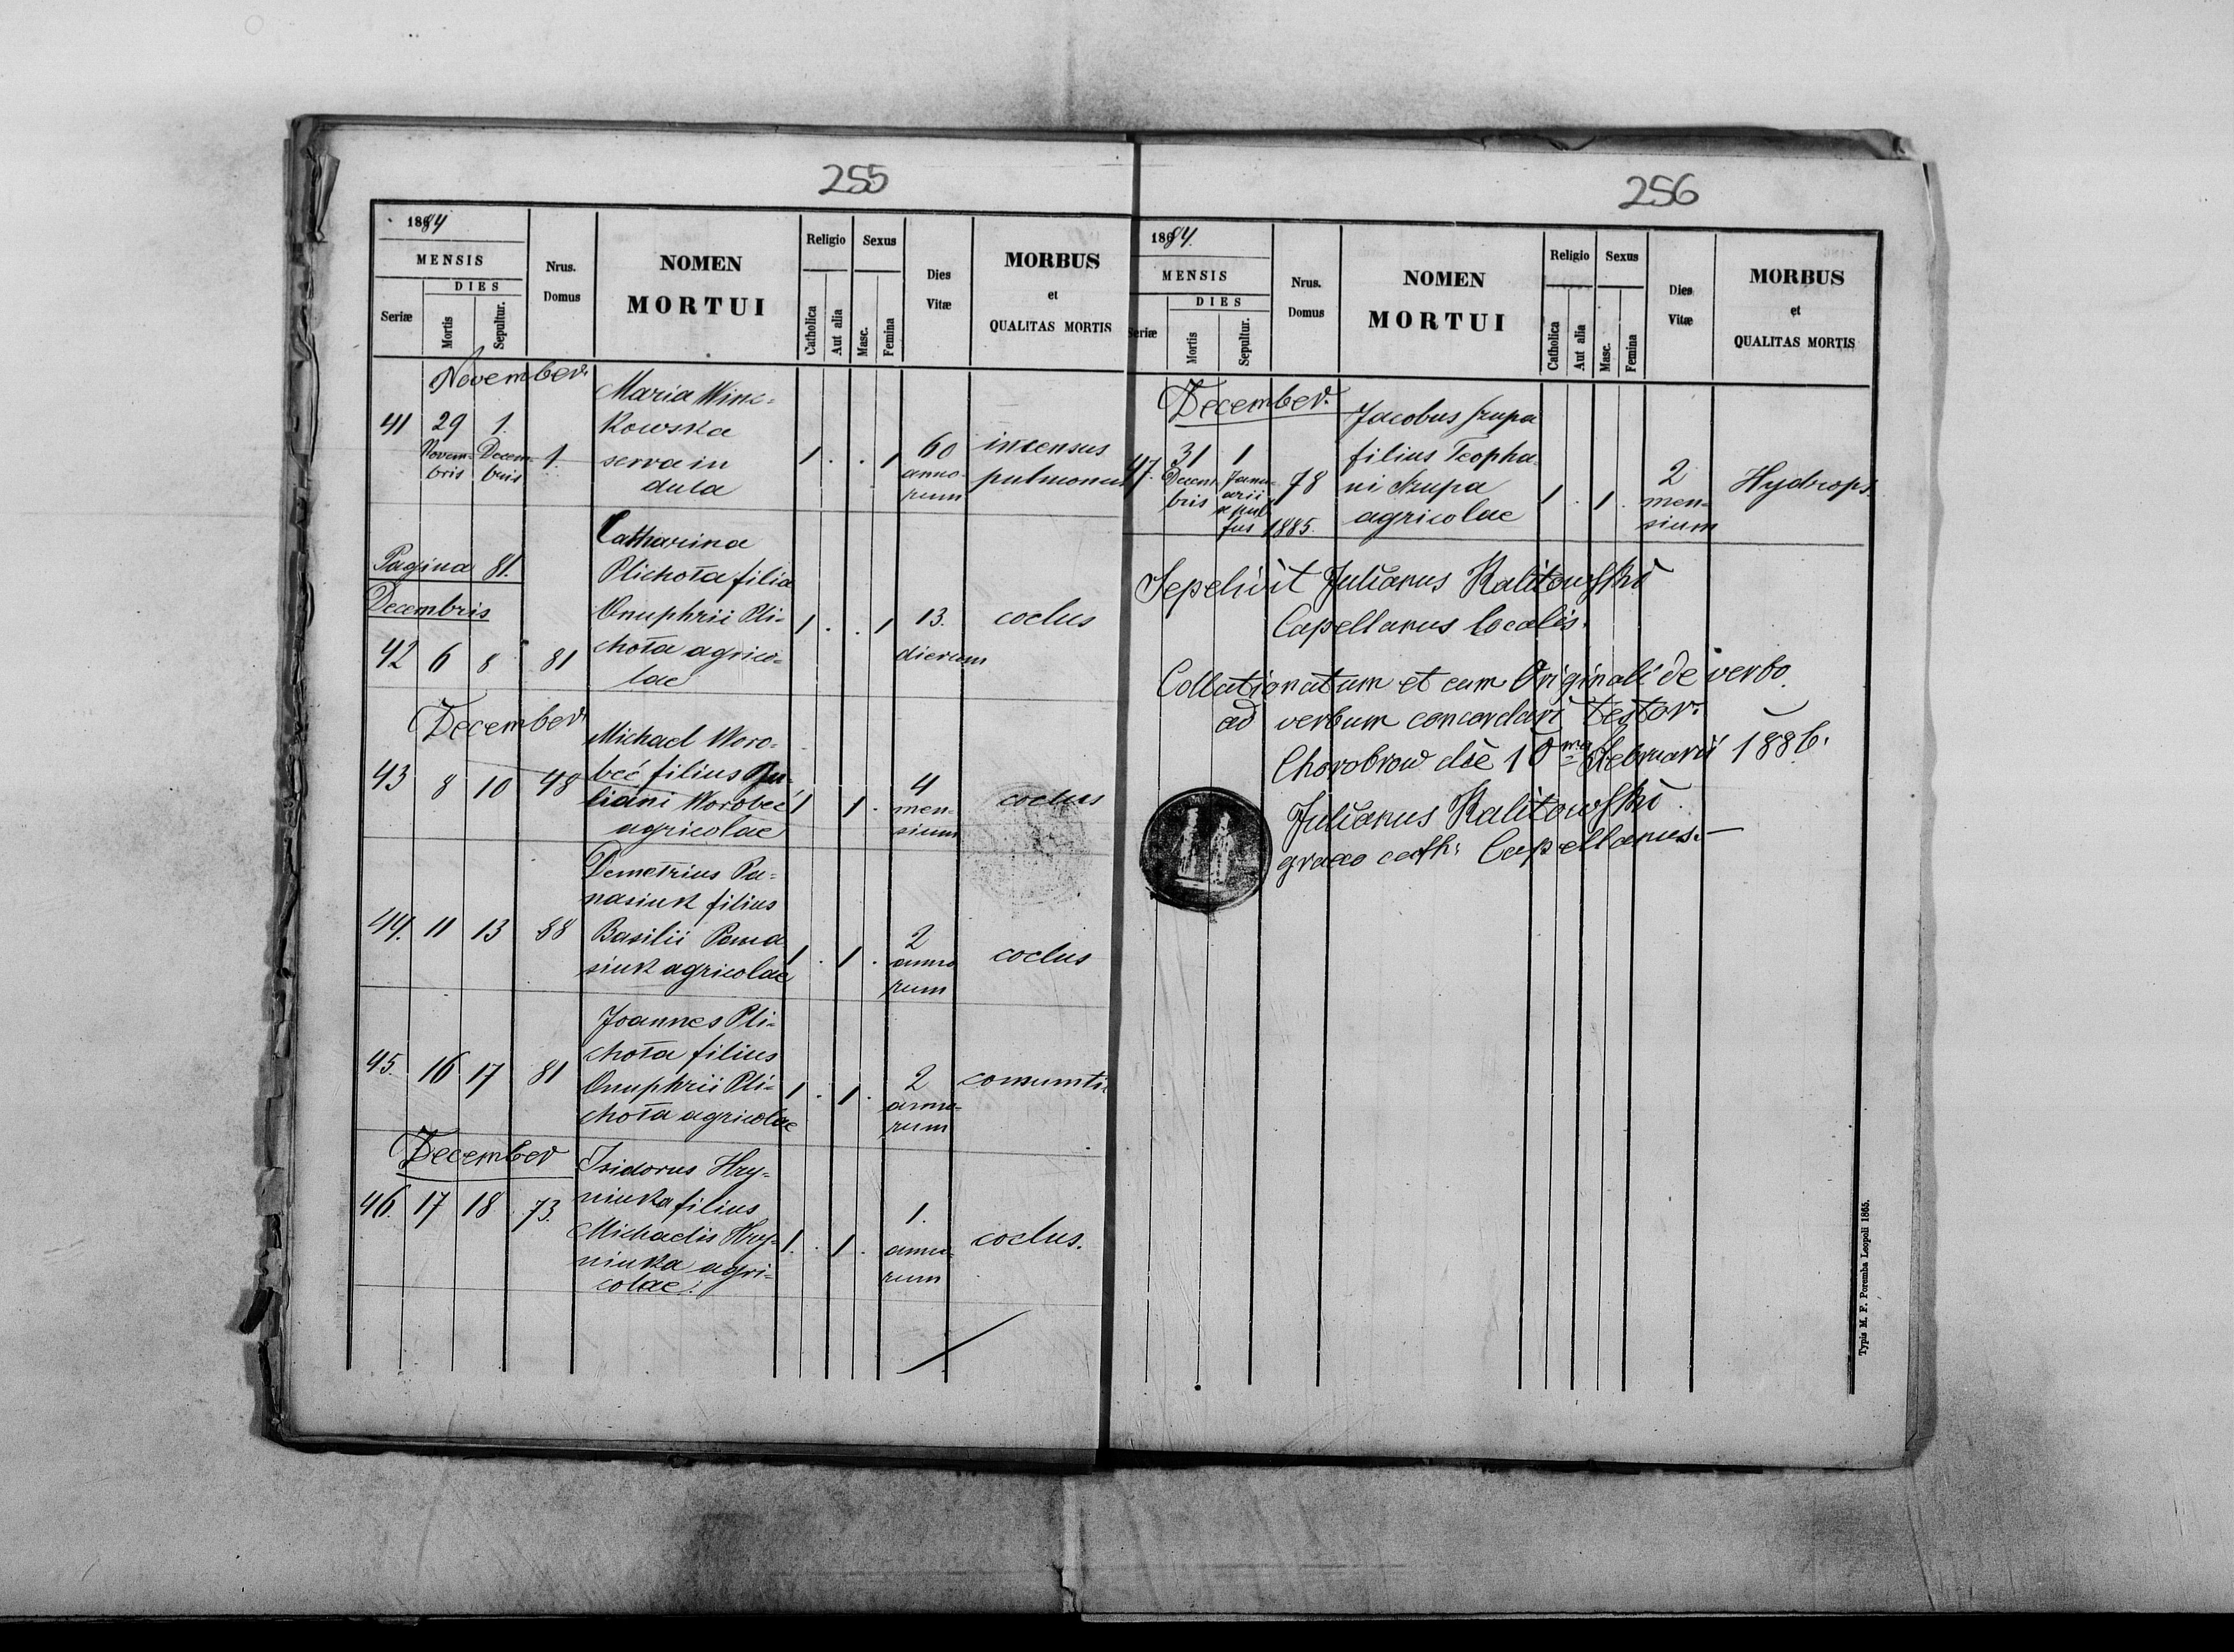 255
1884
MENSIS
DIES
Seriæ
Mortis
Sepultur.
Nrus.
Domus
NOMEN
MORTUI
Religio
Catholica
Aut alia
Sexus
Masc.
Femina
Dies
Vitæ
MORBUS
et
QUALITAS MORTIS
November
41 29 1.
Novem- Decem-
bris bris
1.
Maria Winc-
kowska
serva in
aula
1 . . 1
60
anno-
rum
incensus
pulmonum
Pagina 81.
Decembris
42 6 8 81
Catharina
Plichota filia
Onuphrii Pli-
chota agrico-
lae
1 . . 1
13.
dierum
coclus
December
43 8 10 48
Michael Woro-
beć filius Ju-
liani Worobeć
agricolae
1 1 .
4
men-
sium
coclus
44. 11 13 88
Demetrius Pa-
nasiuk filius
Basilii Pana
siuk agricolae
1 . 1 .
2
anno
rum
coclus
45. 16 17 81
Joannes Pli-
chota filius
Onuphrii Pli-
chota agricolae
1 . 1 .
2
anno-
rum
December
46. 17 18 73.
Isidorus Hry-
niuka filius
Michaelis Hry-
niuka agri-
colae.
1. . 1 .
1.
anno-
rum
coclus.
256
1884.
MENSIS
DIES
Seriæ
Mortis
Sepultur.
Nrus.
Domus
NOMEN
MORTUI
Religio
Catholica
Aut alia
Sexus
Masc.
Femina
Dies
Vitæ
MORBUS
et
QUALITAS MORTIS
December.
47. 31 1
Decem Janu-
bris arii
1885.
78
Jacobus Szupa
filius Teopha-
ni Szupa
agricolae
1 . 1 .
2
men-
sium
Hydrops
Sepelivit Julianus Kalitowski
Capellanus localis.
Collationatum et cum Originali de verbo
ad verbum concordari testor.
Chorobrow die 10ma Februarii 1886.
Julianus Kalitowski
graeco cath: Capellanus.—
Typis M. F. Poremba Leopoli 1865.